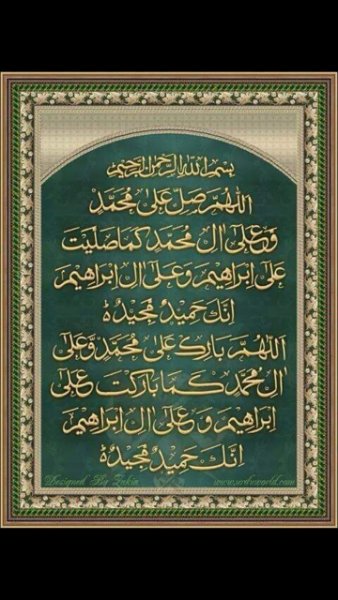 بسم الله الرحمن الرحيم
اللهم صل على محمد
وعلى آل محمد كما صليت
على ابراهيم وعلى آل ابراهيم
انك حميد مجيد
اللهم بارك على محمد وعلى
آل محمد كما باركت على
ابراهيم وعلى آل ابراهيم
انك حميد مجيد
Designed By Zakia